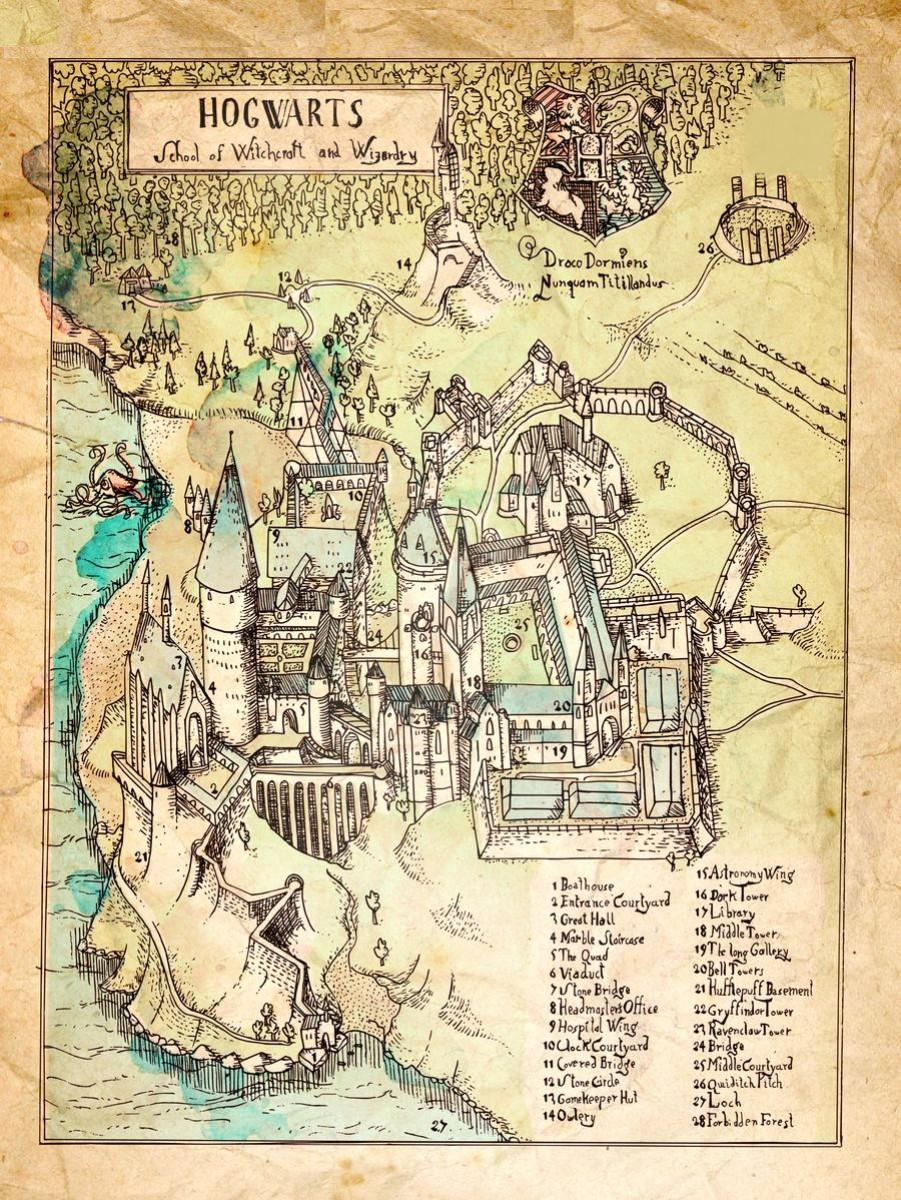 HOGWARTS
School of Witchcraft and Wizardry
H
28
26
Draco Dormiens
Nunquam Titillandus
14
12
13
11
17
10
8
9
15
22
25
24
16
3
4
18
5
20
23
19
2
21
27
1 Boathouse
2 Entrance Courtyard
3 Great Hall
4 Marble Staircase
5 The Quad
6 Viaduct
7 Stone Bridge
8 Headmasters Office
9 Hospital Wing
10 Clock Courtyard
11 Covered Bridge
12 Stone Circle
13 GameKeeper Hut
14 Owlery
15 Astronomy Wing
16 Dark Tower
17 Library
18 Middle Tower
19 The long Gallery
20 Bell Towers
21 Hufflepuff Basement
22 Gryffindor Tower
23 Ravenclaw Tower
24 Bridge
25 Middle Courtyard
26 Quiditch Pitch
27 Loch
28 Forbidden Forest